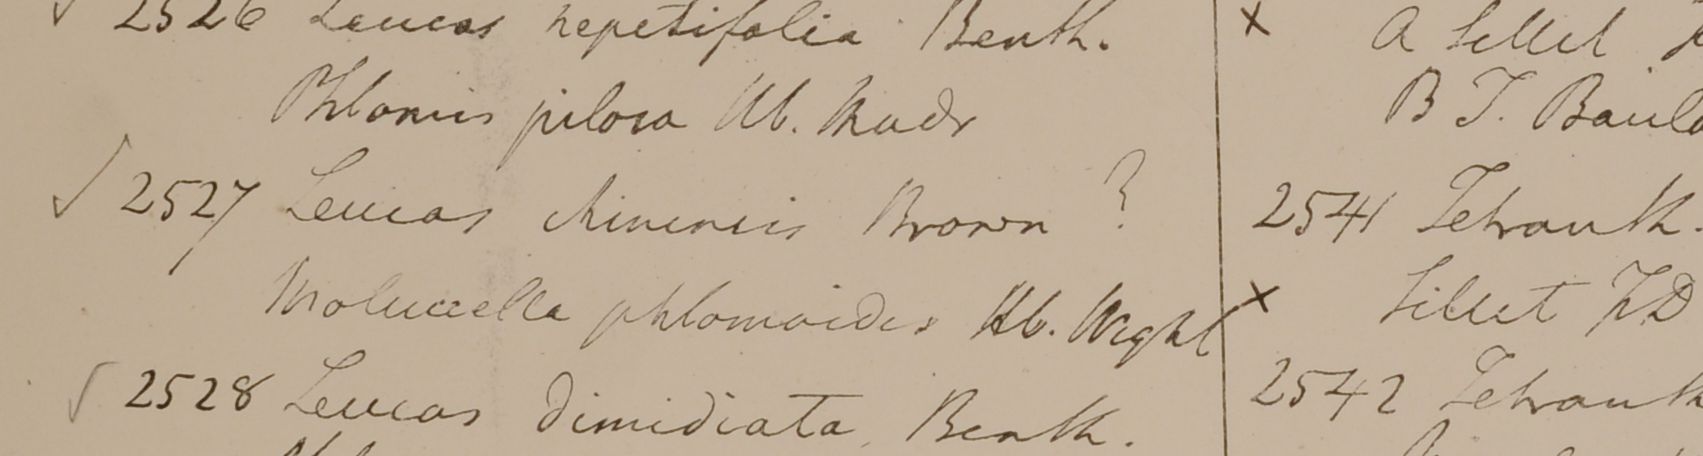 √ 2526 Leucas nepetifolia Benth.
Phlomis pilosa Hb. Madr
√ 2527 Leucas chinensis Brown ?
Moluccella phlomoides Hb. Wight
√ 2528 Leucas dimidiata Benth.
× a Sillet
B T. Baul
2541 Tetranth.
× Sillet FD
2542 Tetranth